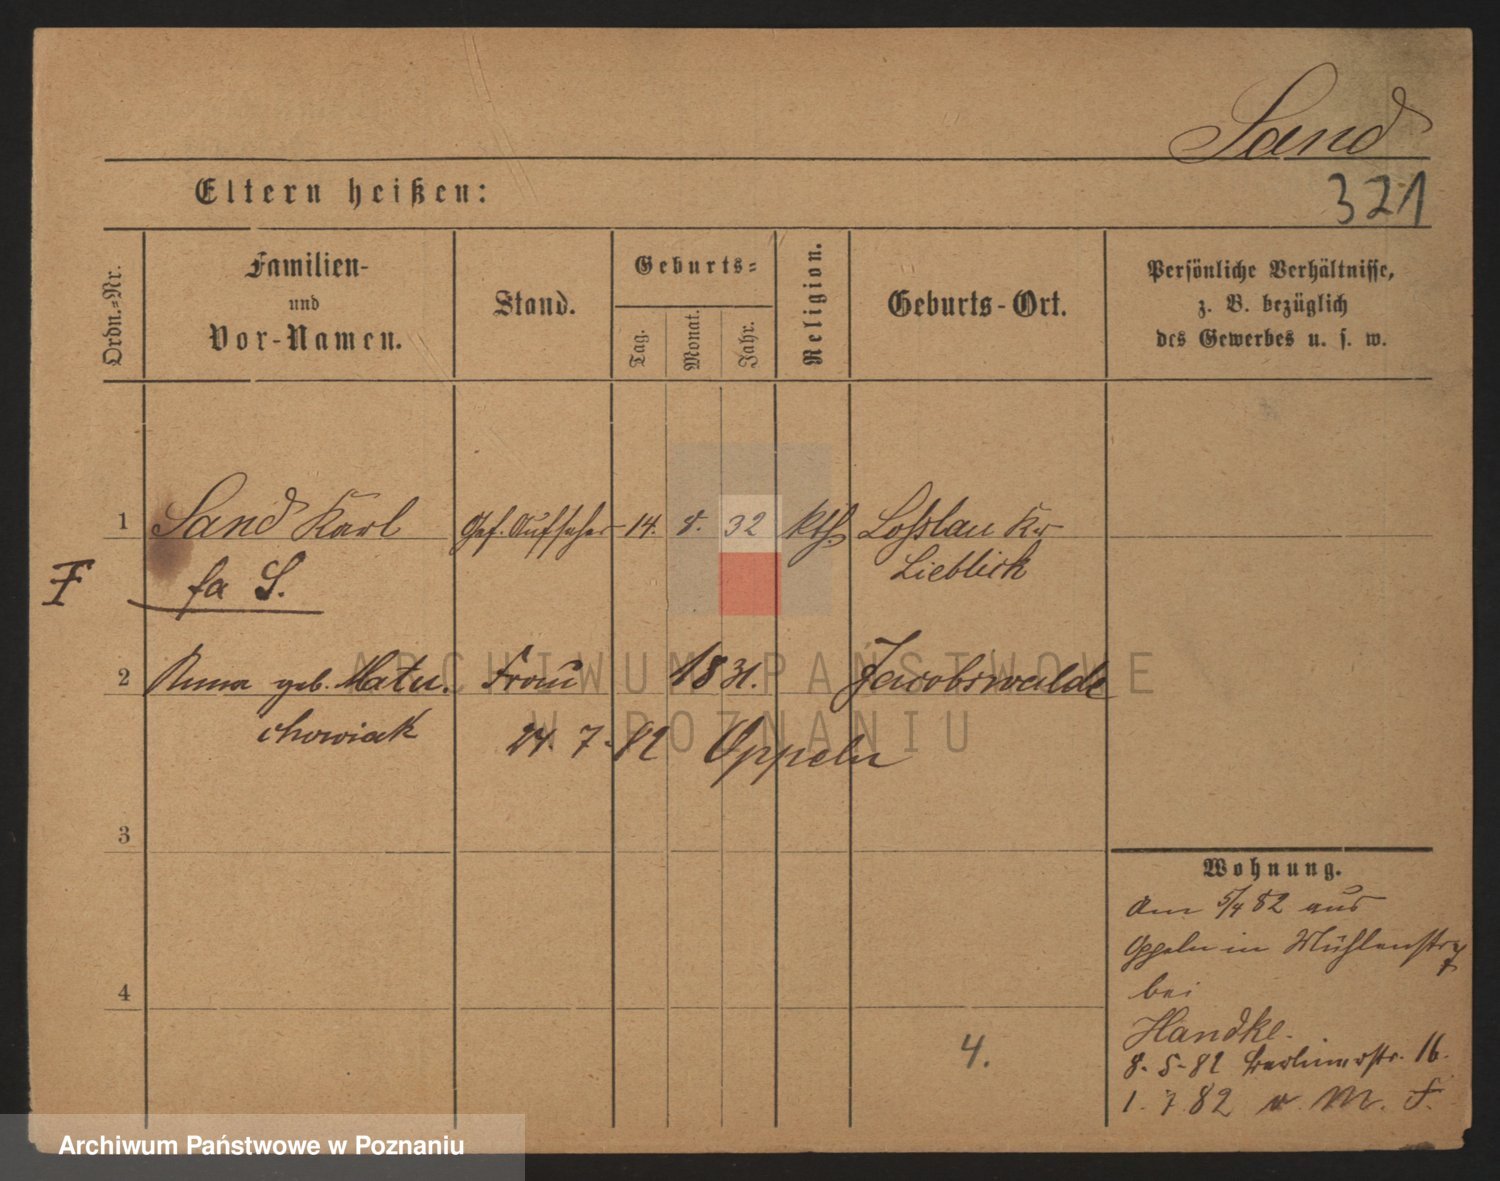 Sand
Eltern heißen:
321
Ordn.-Nr.
Familien-
und
Vor-Namen.
Stand.
Geburts-
Tag.
Monat.
Jahr.
Religion.
Geburts-Ort.
Persönliche Verhältnisse,
z. B. bezüglich
des Gewerbes u. s. w.
1 Sand Karl Gef. Aufseher 14. 8. 32 kth. Loßlau Kr
Lieblick
F fa S.
2 Anna geb. Matu. Frau 1831. Jacobswalde
chowiak 24. 7. 82 Oppeln
3
4
4.
Wohnung.
Am 5/4 82 aus
Oppeln in Mühlenstr 7
bei
Handke.
8. 5. 82 Berlinerstr. 16.
1. 7. 82 v. M. F.
ARCHIWUM PAŃSTWOWE
W POZNANIU
Archiwum Państwowe w Poznaniu